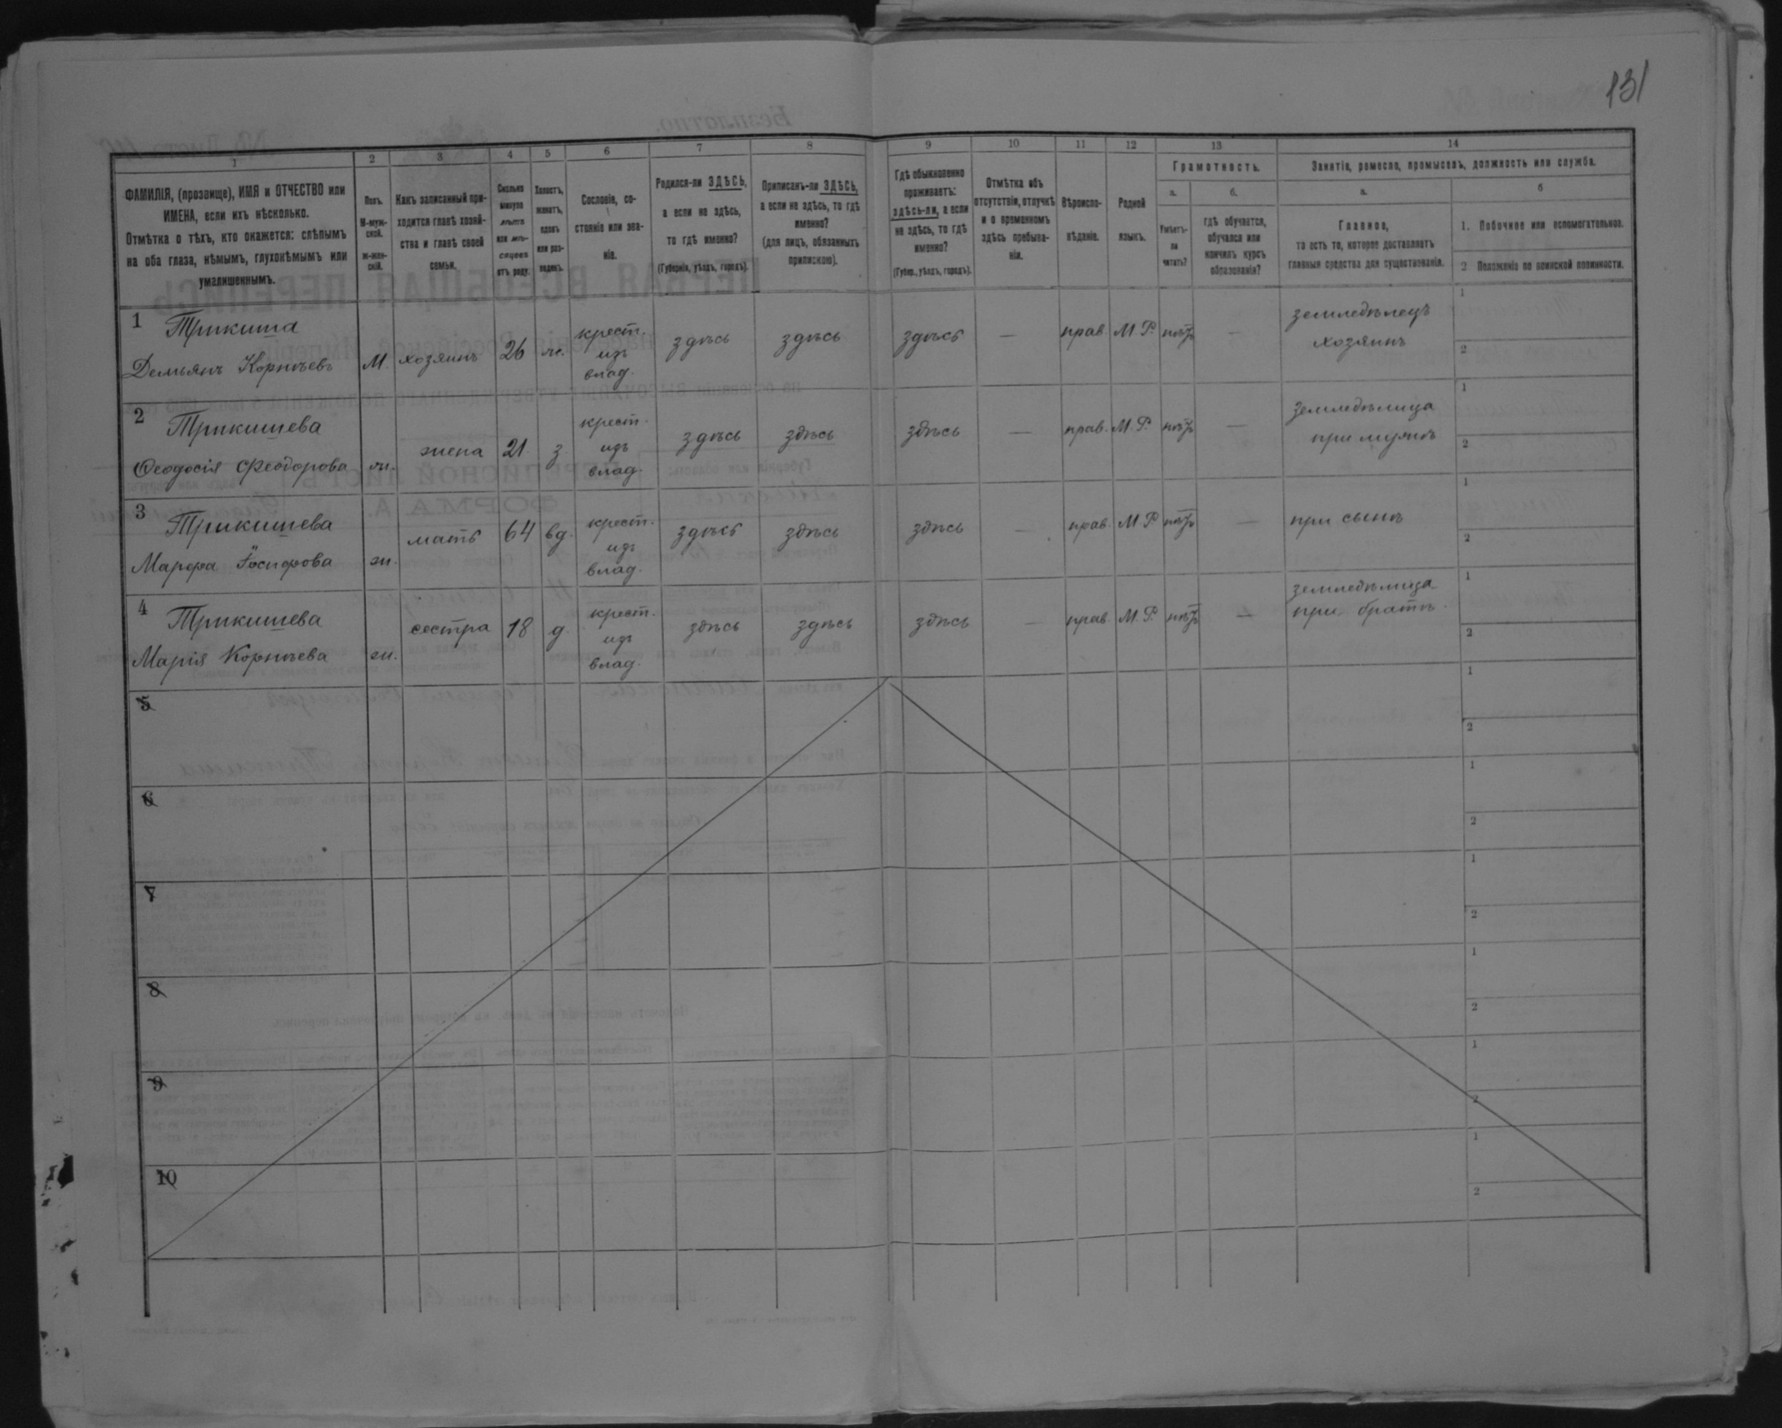 131
1
2
3
4
5
6
7
8
9
10
11
12
13
14
ФАМИЛІЯ, (прозвище), ИМЯ и ОТЧЕСТВО или
ИМЕНА, если ихъ нѣсколько.
Отмѣтка о тѣхъ, кто окажется: слѣпымъ
на оба глаза, нѣмымъ, глухонѣмымъ или
умалишеннымъ.
Полъ.
М-муж-
ской.
ж-жен-
скій.
Какъ записанный при-
ходится главѣ хозяй-
ства и главѣ своей
семьи.
Сколько
минуло
лѣтъ
или мѣ-
сяцевъ
отъ роду.
Холостъ,
женатъ,
вдовъ
или раз-
веденъ.
Сословіе, со-
стояніе или зва-
ніе.
Родился-ли ЗДѢСЬ,
а если не здѣсь,
то гдѣ именно?
(Губернія, уѣздъ, городъ).
Приписанъ-ли ЗДѢСЬ,
а если не здѣсь, то гдѣ
именно?
(для лицъ, обязанныхъ
припискою).
Гдѣ обыкновенно
проживаетъ:
здѣсь-ли, а если
не здѣсь, то гдѣ
именно?
(Губер., уѣздъ, городъ).
Отмѣтка объ
отсутствіи, отлучкѣ
и о временномъ
здѣсь пребыва-
ніи.
Вѣроиспо-
вѣданіе.
Родной
языкъ.
Грамотность.
а.
Умѣетъ-
ли
читать?
б.
гдѣ обучается,
обучался или
кончилъ курсъ
образованія?
Занятія, ремесло, промыселъ, должность или служба.
а.
Главное,
то есть то, которое доставляетъ
главныя средства для существованія.
б
1. Побочное или вспомогательное.
2 Положеніе по воинской повинности.
1 Трикиша
Демьянъ Корнѣевъ М. хозяинъ 26 ж. крест. изъ влад. здѣсь здѣсь здѣсь — прав М Р. нѣтъ — земледѣлецъ хозяинъ 1 2
2 Трикишева
Ѳеодосія Ѳеодорова ж. жена 21 з крест. изъ влад. здѣсь здѣсь здѣсь — прав. М.Р. нѣтъ — земледѣлица при мужѣ 1 2
3 Трикишева
Марфа ж. мать 64 вд. крест. изъ влад. здѣсь здѣсь здѣсь — прав. М Р нѣтъ — при сынѣ 1 2
4 Трикишева
Марія Корнѣева ж. сестра 18 д крест. изъ влад. здѣсь здѣсь здѣсь — прав. М.Р. нѣтъ — земледѣлица при братѣ. 1 2
5 1 2
6 1 2
7 1 2
8 1 2
9 1 2
10 1 2